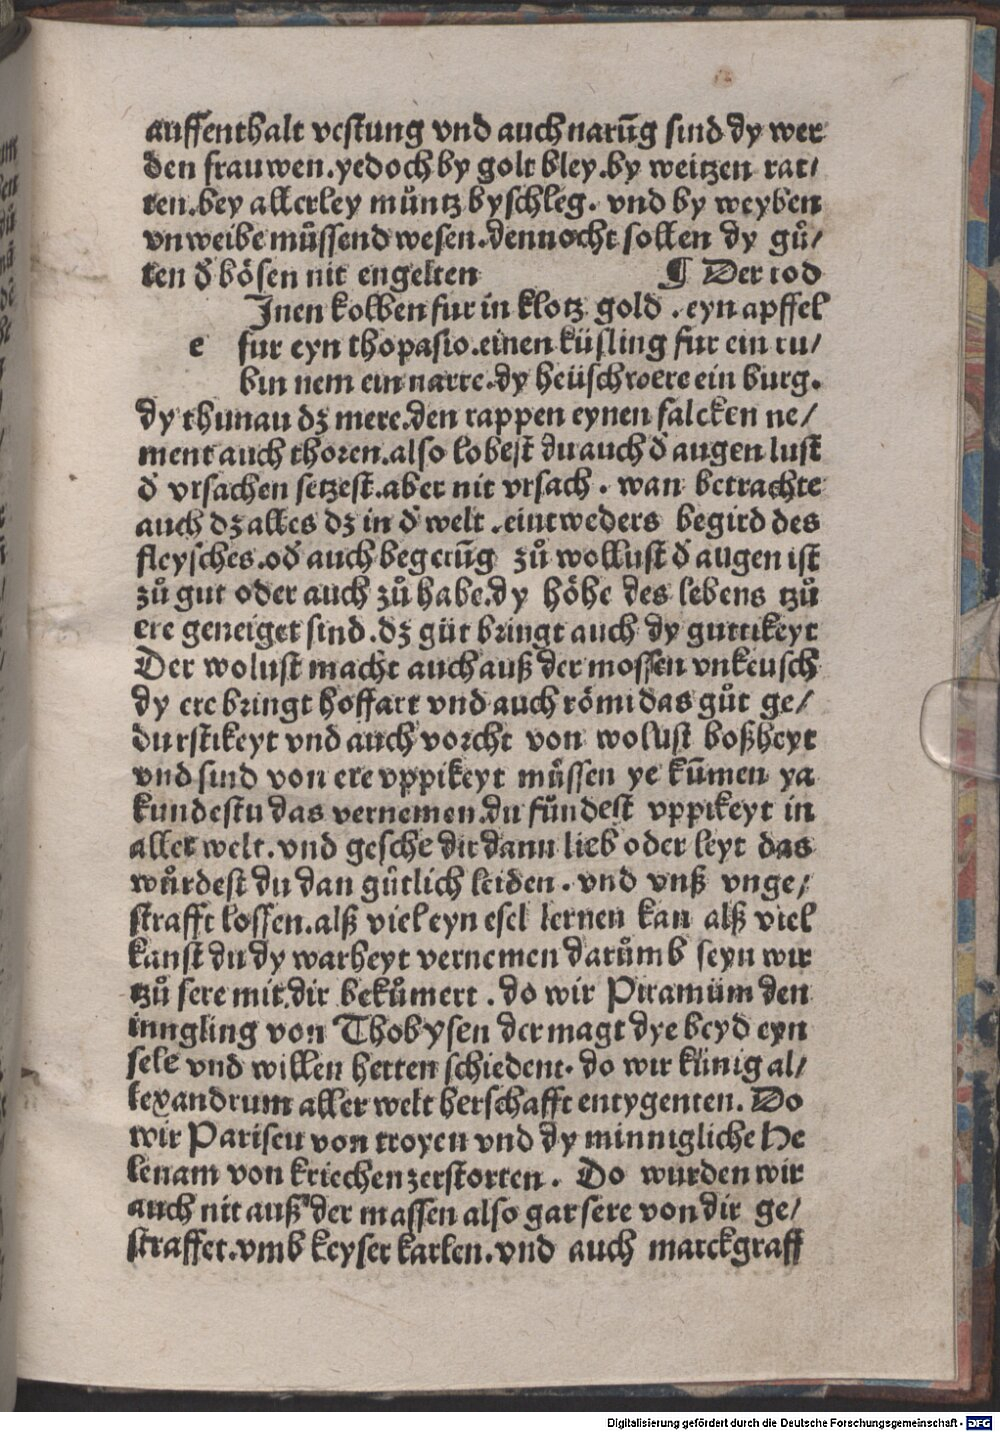 auffenthalt vestung vnd auch narūg sind dy wer
den frauwen.yedoch by golt bley.by weitzen rat/
ten.bey allerley mu̇ntz byschleg. vnd by weyben
vnweibe mu̇ssend wesen.dennocht sollen dy gů/
ten đ bösen nit engelten ¶ Der tod
Jnen kolben fur in klotz gold . eyn apffel
e fur eyn thopasio.einen küsling fur ein ru/
bin nem ein narre.dy heüschroere ein burg.
dy thunau dʒ mere.den rappen eynen falcken ne/
ment auch thoren.also lobest du auch đ augen lust
đ vrsachen setzest.aber nit vrsach . wan betrachte
auch dʒ alles dʒ in đ welt .eintweders begird des
fleysches.ođ auch begerūg zů wollust đ augen ist
zů gut oder auch zů habe.dy höhe des lebens tzů
ere geneiget sind.dʒ güt bringt auch dy guttikeyt
Der wolust macht auch auß der mossen vnkeusch
dy ere bringt hoffart vnd auch römi das gůt ge/
durstikeyt vnd auch vorcht von wolust boßheyt
vnd sind von ere vppikeyt müssen ye kūmen ya
kundestu das vernemen.du fu̇ndest vppikeyt in
aller welt.vnd gesche dir dann lieb oder leyt das
wu̇rdest du dan gůtlich leiden . vnd vnß vnge/
strafft lossen.alß viel eyn esel lernen kan alß viel
kanst du dy warheyt vernemen darůmb seyn wir
tzů sere mit dir beku̇mert . do wir Piramüm den
inngling von Thobysen der magt dye beyd eyn
sele vnd willen hetten schiedent. do wir künig al/
lexandrum aller welt herschafft entygenten. Do
wir Parisen von troyen vnd dy minnigliche He
lenam von kriechen zerstorten . Do wurden wir
auch nit auß der massen also gar sere von dir ge/
straffet.vmb keyser karlen.vnd auch marckgraff
Digitalisierung gefördert durch die Deutsche Forschungsgemeinschaft - DFG